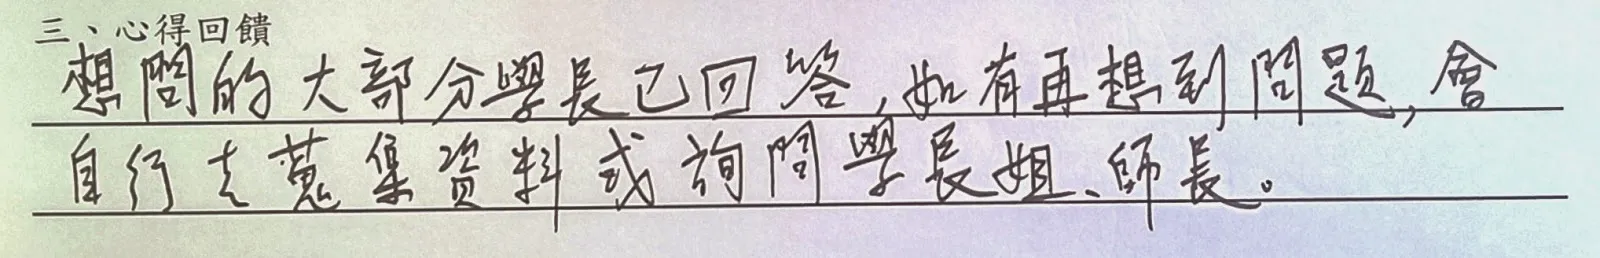 三、心得回饋
想問的大部分學長已回答,如有再想到問題,會
自行去蒐集資料或詢問學長姐、師長。